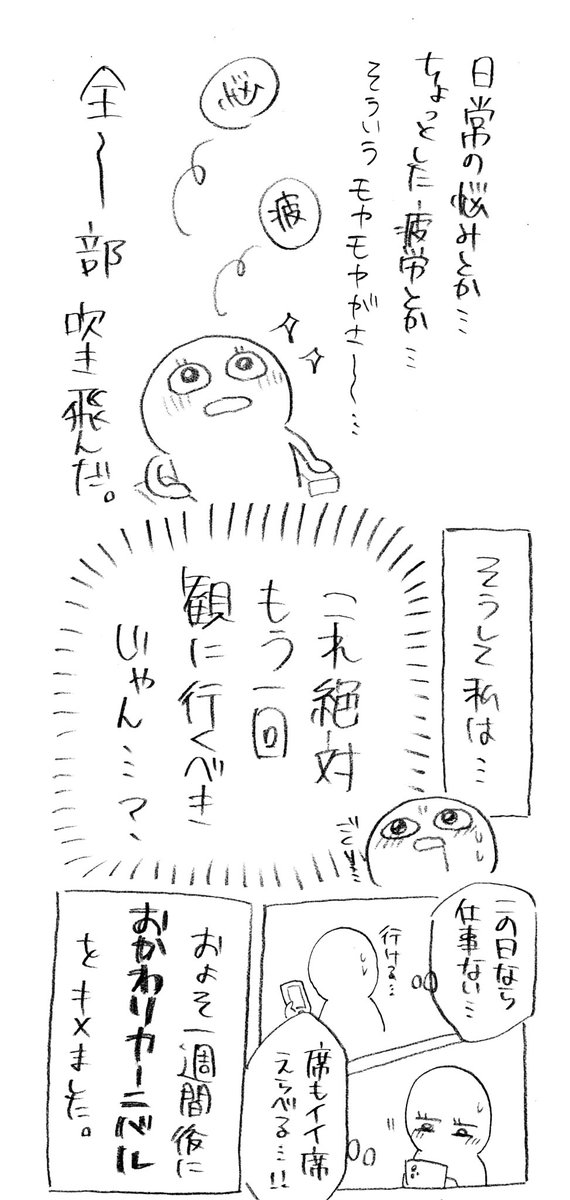 日常の悩みとか…
ちょっとした疲労とか…
そういうモヤモヤがさ〜…
悩
疲
全〜部
吹き飛んだ。
そうして私は…
これ絶対
もう一回
観に行くべき
じゃん…？
この日なら
仕事ない…
行ける…
席もイイ席
えらべる…!!
およそ一週間後に
おかわりカーニバル
をキメました。